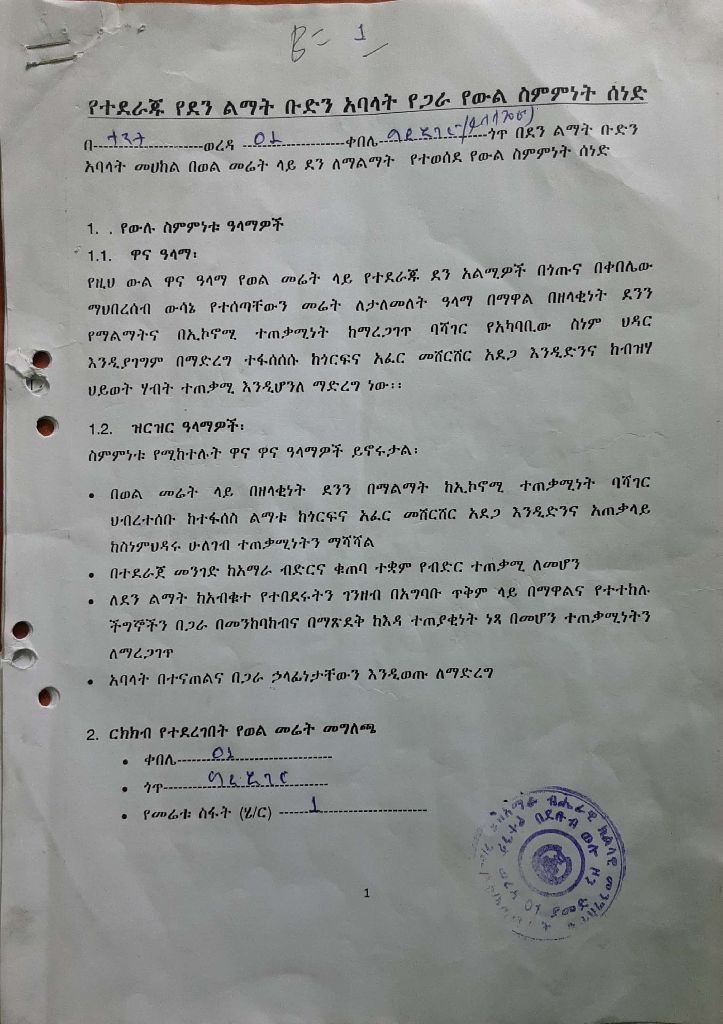 1
የተደራጁ የደን ልማት ቡድን አባላት የጋራ የውል ስምምነት ሰነድ
በ----------------------ወረዳ --------------------ቀበሌ----------------------ጎጥ በደን ልማት ቡድን
አባላት መሀከል በወል መሬት ላይ ደን ለማልማት የተወሰደ የውል ስምምነት ሰነድ
1. . የውሉ ስምምነቱ ዓላማዎች
1.1. ዋና ዓላማ፡
የዚህ ውል ዋና ዓላማ የወል መሬት ላይ የተደራጁ ደን አልሚዎች በጎጡና በቀበሌው
ማህበረሰብ ውሳኔ የተሰጣቸውን መሬት ለታለመለት ዓላማ በማዋል በዘላቂነት ደንን
የማልማትና በኢኮኖሚ ተጠቃሚነት ከማረጋገጥ ባሻገር የአካባቢው ስነም ህዳር
እንዲያገግም በማድረግ ተፋሰሰሱ ከጎርፍና አፈር መሸርሸር አደጋ እንዲድንና ከብዝሃ
ህይወት ሃብት ተጠቃሚ እንዲሆንለ ማድረግ ነው፡፡
1.2. ዝርዝር ዓላማዎች፡
ስምምነቱ የሚከተሉት ዋና ዋና ዓላማዎች ይኖሩታል፡
• በወል መሬት ላይ በዘላቂነት ደንን በማልማት ከኢኮኖሚ ተጠቃሚነት ባሻገር
ህብረተሰቡ ከተፋሰስ ልማቱ ከጎርፍና አፈር መሸርሸር አደጋ እንዲድንና አጠቃላይ
ከስነምህዳሩ ሁለገብ ተጠቃሚነትን ማሻሻል
• በተደራጀ መንገድ ከአማራ ብድርና ቁጠባ ተቋም የብድር ተጠቃሚ ለመሆን
• ለደን ልማት ከአብቁተ የተበደሩትን ገንዘብ በአግባቡ ጥቅም ላይ በማዋልና የተተከሉ
ችግኞችን በጋራ በመንከባከብና በማጽደቅ ከእዳ ተጠያቂነት ነጻ በመሆን ተጠቃሚነትን
ለማረጋገጥ
• አባላት በተናጠልና በጋራ ኃላፊነታቸውን እንዲወጡ ለማድረግ
2. ርክክብ የተደረገበት የወል መሬት መግለጫ
• ቀበሌ------01------------------------
• ጎጥ--------------------------------
• የመሬቱ ስፋት (ሄ/ር) ------1----------------------
1